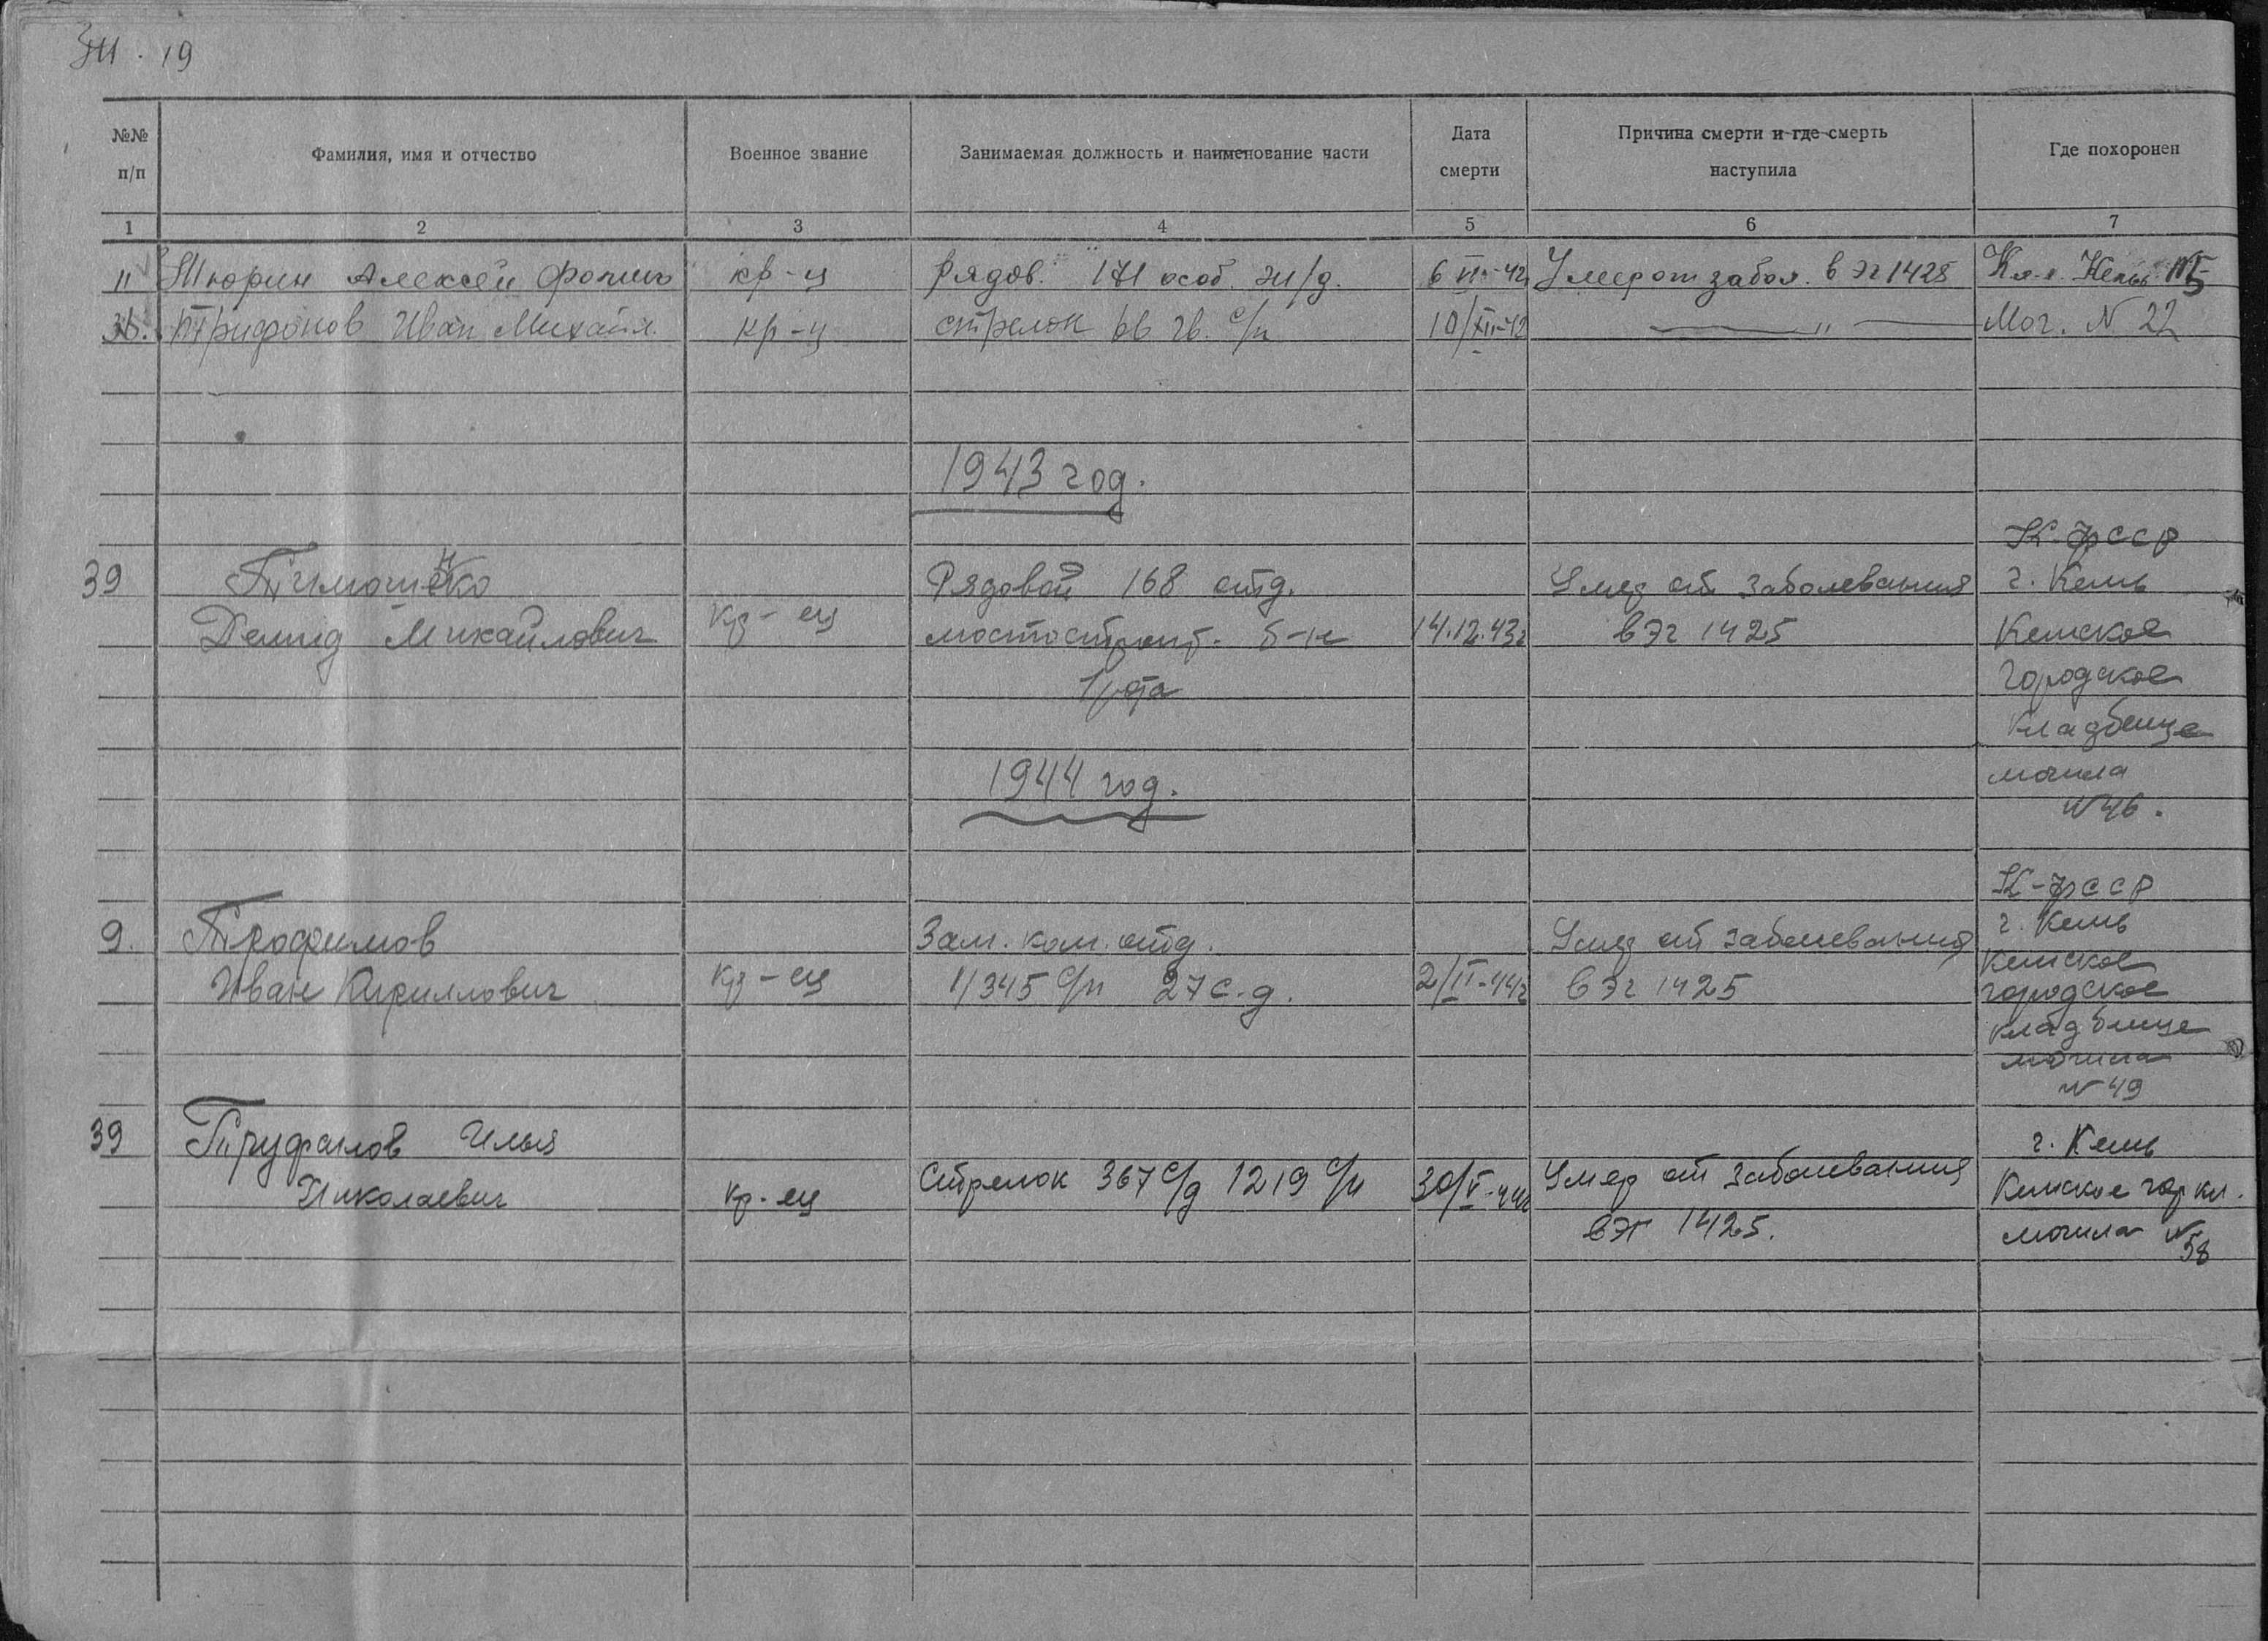 19
№№ п/п
Фамилия, имя и отчество
Военное звание
Занимаемая должность и наименование части
Дата смерти
Причина смерти и где смерть наступила
Где похоронен
1 2 3 4 5 6 7
11 Тюрин Алексей Фомич кр-ц рядов. 171 особ. ж/д. 6 42 Умер от забол. в ЭГ 1428 Кл-.
Трифонов Иван Михайл. кр-ц стрелок гв. с/п 10/XII-42 —„— Мог. N 22
1943 год.
К-ФССР
39 Тимошенко Рядовой 168 отд. Умер от заболевания г. Кемь
Демид Михайлович кр-ец мостостроит. б-н 14.12.43г в ЭГ 1425 Кемское
1 рота городское
кладбище
1944 год. могила
N 46.
К-ФССР
9. Трофимов Зам. ком. отд. Умер от заболевания г. Кемь
Иван Кириллович кр-ец 1/345 с/п 27 с.д. 2/II-44г в ЭГ 1425 Кемское
городское
кладбище
могила
N 49
39 Труфанов Илья г. Кемь
Николаевич кр-ец Стрелок 367 с/д 1219 с/п 30/V-44г Умер от заболевания Кемское гор кл.
в ЭГ 1425. могила N 58